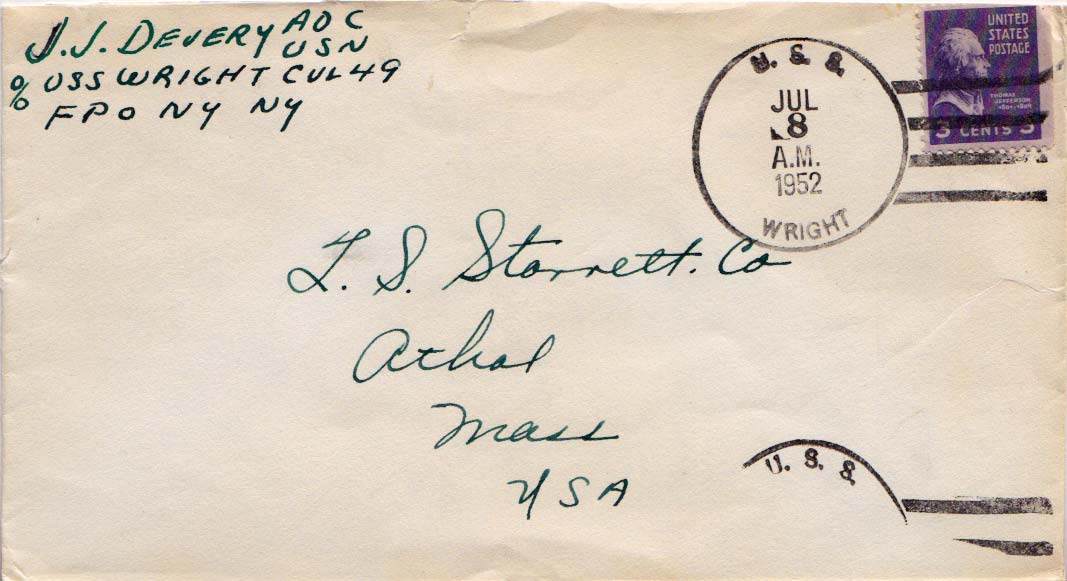 J. J. DEVERY ADC
USN
% USS WRIGHT CVL49
FPO NY NY
U. S. S.
JUL
8
A.M.
1952
WRIGHT
UNITED
STATES
POSTAGE
THOMAS
JEFFERSON
1801-1809
3 CENTS 3
L. S. Starrett. Co
Athol
Mass
USA
U. S. S.